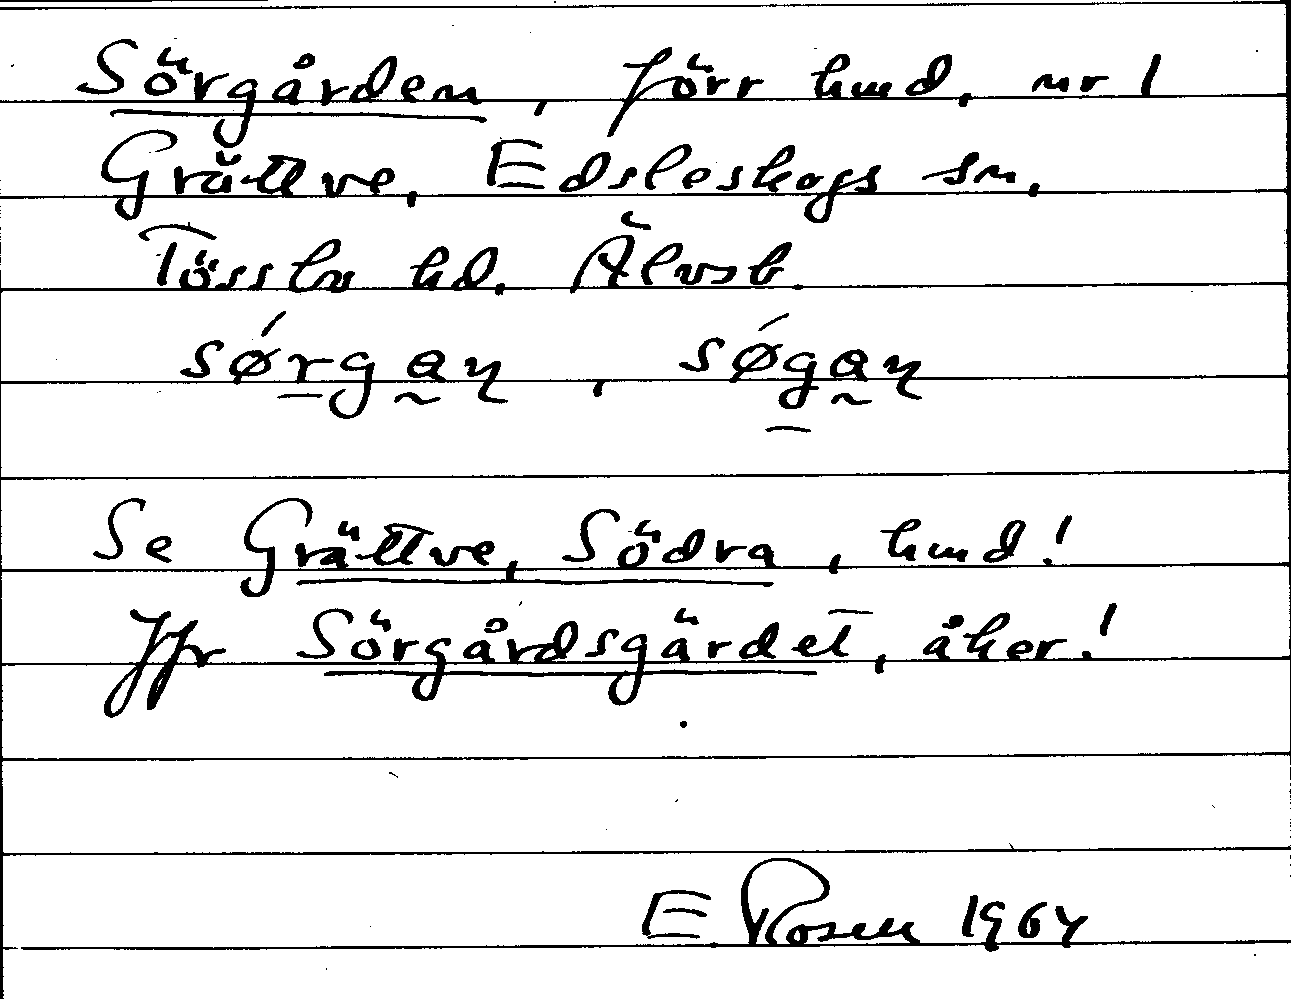 Sörgården, förr hmd, nr 1
Grättve, Edsleskogs sn,
Tössbo hd, Älvsb.
sørgan, søgan
Se Grättve, Södra, hmd!
Jfr Sörgårdsgärdet, åker!
E Rosen 1964